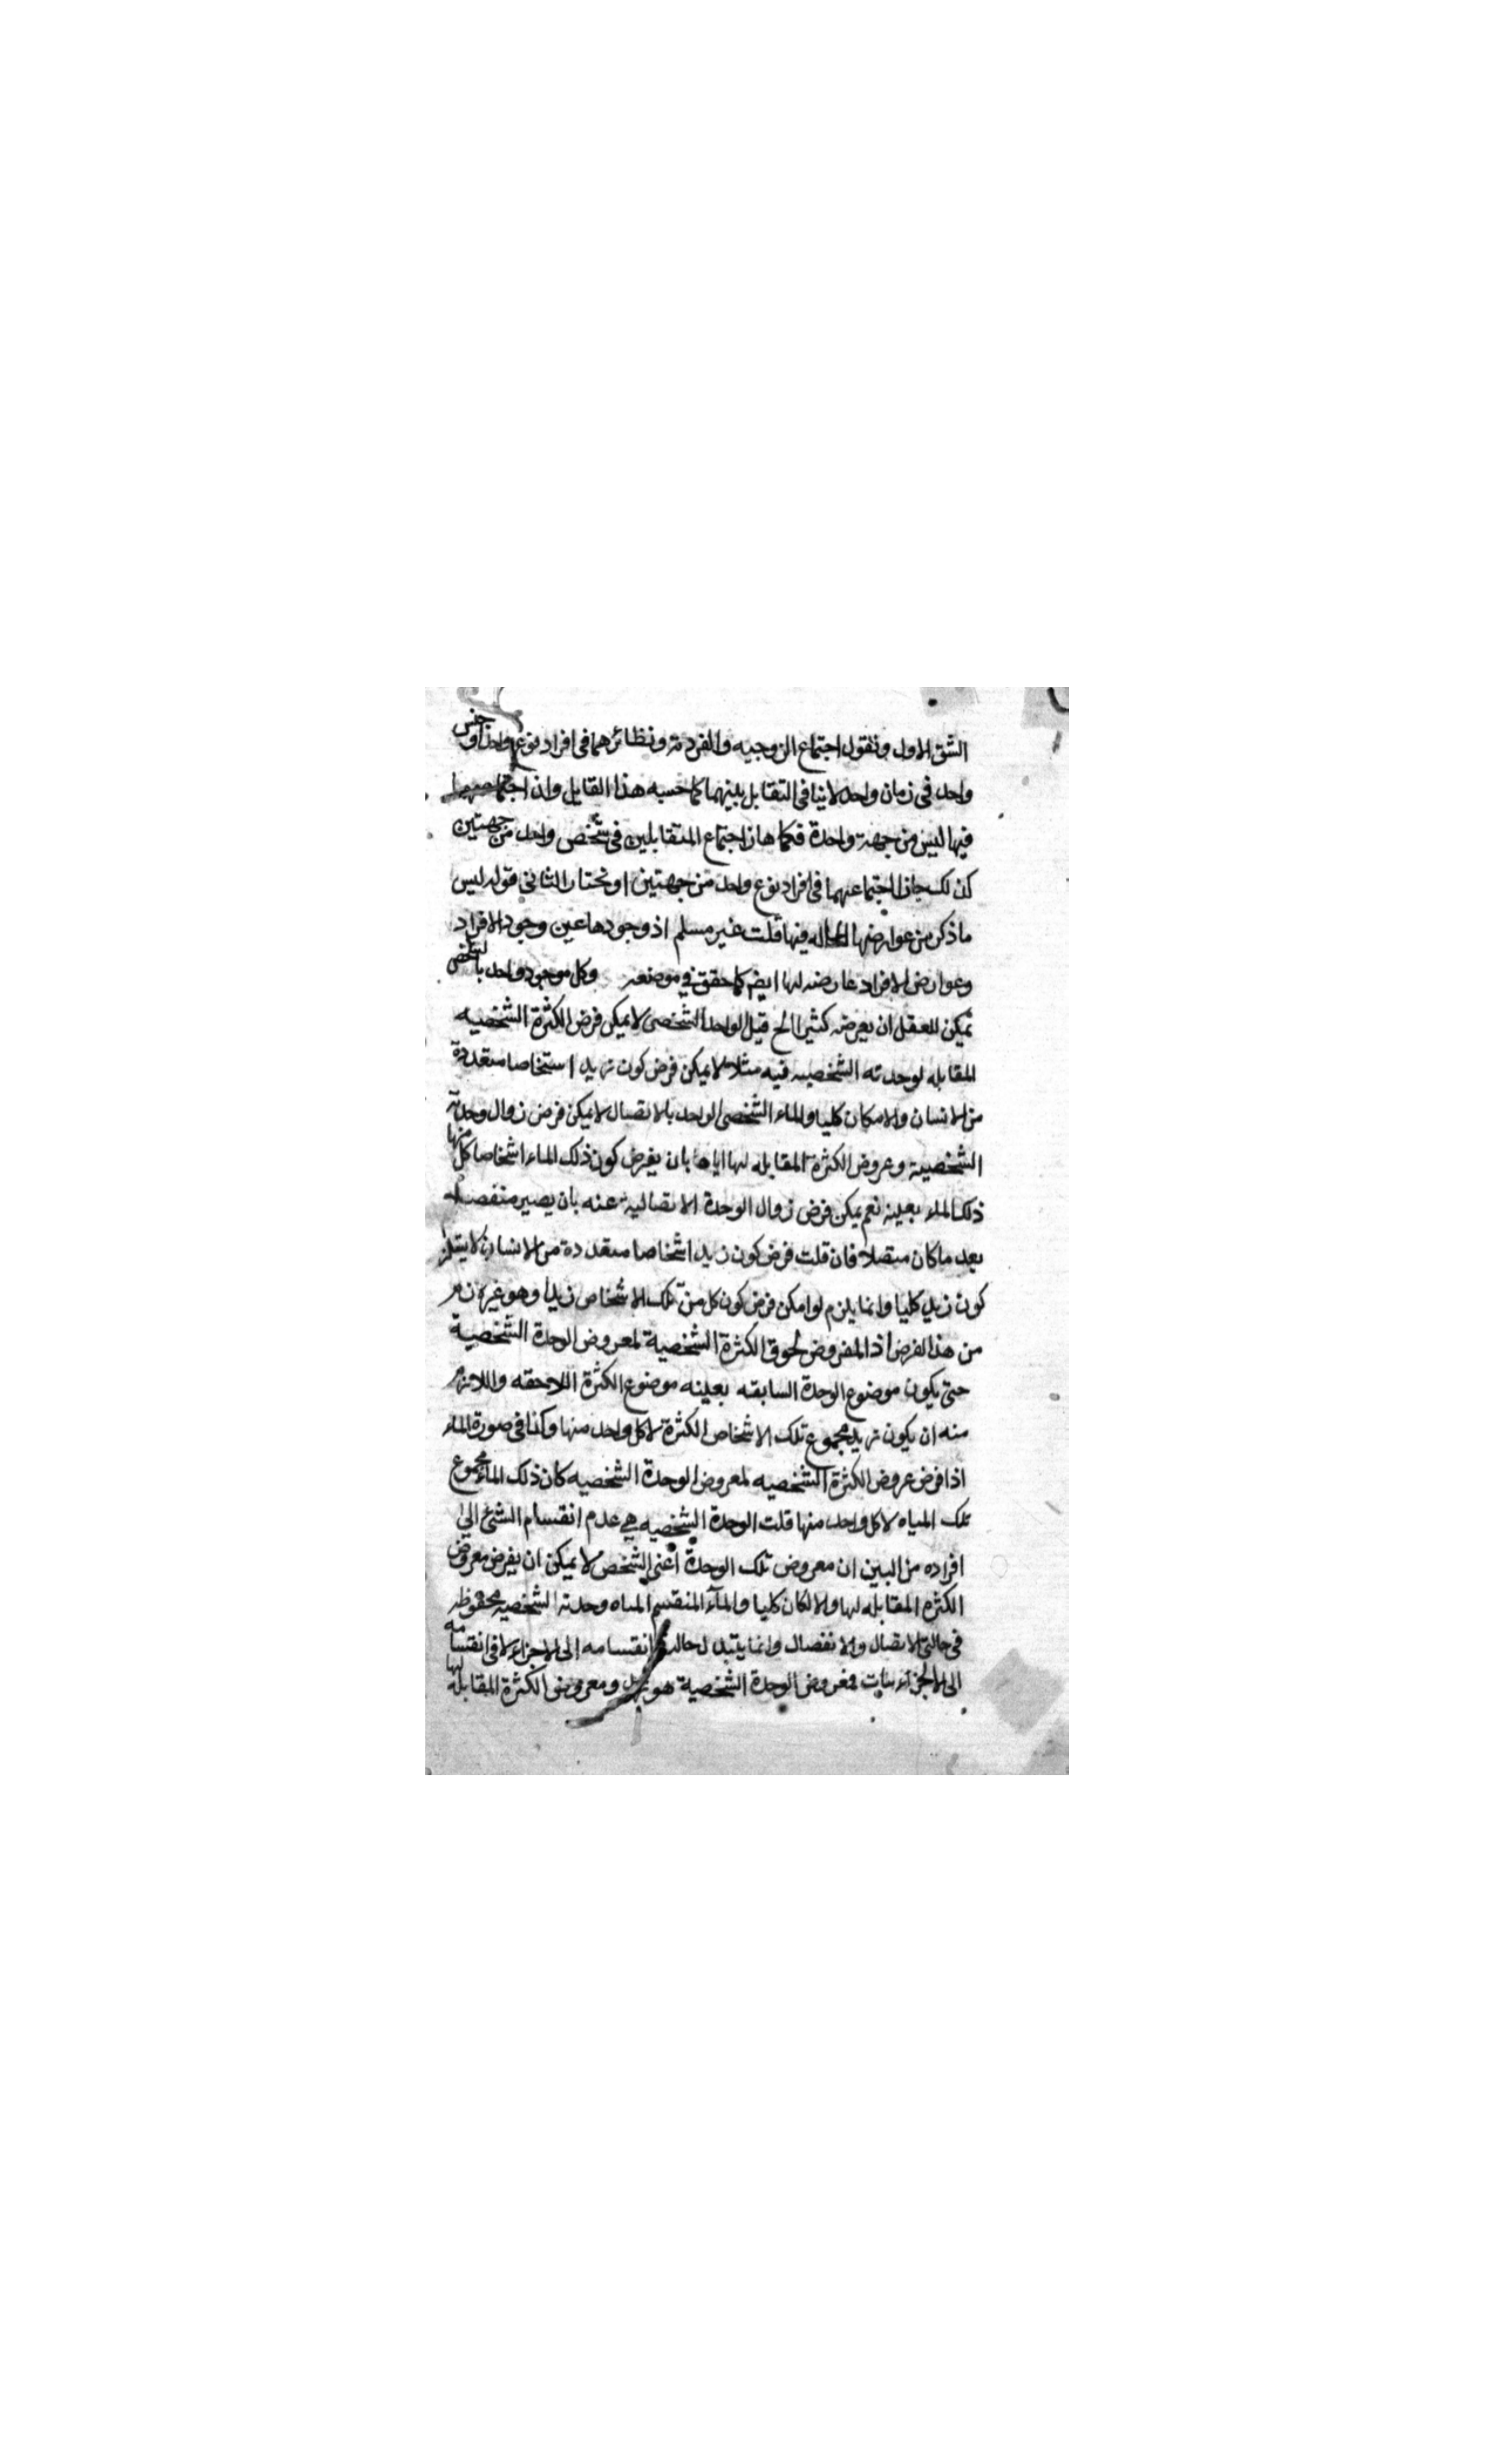 الشق الاول ونقول اجتماع الزوجيه والفردية ونظائرهما فى افراد نوع واحد او جنس
واحد فى زمان واحد لاينافى التقابل بينهما كما حسبه هذا القايل واذ اجتماعهما
فيها ليس من جهة واحدة فكما جاز اجتماع المتقابلين فى شخص واحد من جهتين
كذلك جاز اجتماعهما فى افراد نوع واحد من جهتين او نختار الثانى قوله ليس
ما ذكر من عوارضها الحاله فيها قلت غير مسلم اذ وجودها عين وجود الافراد
وعوارض الافراد عارضه لها ايضم كما حقق فى موضعه وكل موجود واحد بالشخص
يمكن للعقل ان يعرضه كثيرا الخ قيل الواحد الشخصى لا يمكن فرض الكثرة الشخصيه
المقابله لوحدته الشخصيه فيه مثلا لا يمكن فرض كون زيد اشخاصا متعددة
من الانسان والا مكان كليا والماء الشخصى الواحد بالاتصال لا يمكن فرض زوال وحدته
الشخصية وعروض الكثرة المقابله لها اياها بان يفرض كون ذلك الماء اشخاصا كل منها
ذلك الماء بعينه نعم يمكن فرض زوال الوحدة الاتصالية عنه بان يصير منفصلا
بعد ما كان متصلا فان قلت فرض كون زيد اشخاصا متعددة من الانسان لا يستلزم
كون زيد كليا وانما يلزم لو امكن فرض كون كل من تلك الاشخاص زيدا وهو غير لازم
من هذا الفرض اذ المفروض لحوق الكثرة الشخصية لمعروض الوحدة الشخصية
حتى يكون موضوع الوحدة السابقه بعينه موضوع الكثرة اللاحقه واللازم
منه ان يكون زيد مجموع تلك الاشخاص الكثرة لا كل واحد منها وكذا فى صورة الماء
اذا فرض عروض الكثرة الشخصيه لمعروض الوحدة الشخصيه كان ذلك الماء مجموع
تلك المياه لا كل واحد منها قلت الوحدة الشخصيه هى عدم انقسام الشئ الى
افراده من البين ان معروض تلك الوحدة اعنى الشخص لا يمكن ان يفرض معروض
الكثره المقابله لها والا لكان كليا والمآء المنقسم المياه وحدته الشخصيه محفوظه
فى حالتى الاتصال والانفصال وانما يتبدل حالته انقسامه الى الاجزاء لا فى انقسامه
الى الاجزئيات فمعروض الوحدة الشخصية هو زيد ومعروض الكثرة المقابله لها